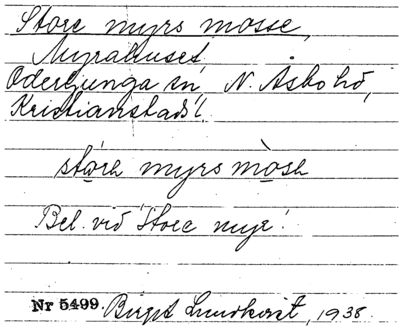 Store myrs mosse,
Myrahuset,
Oderljunga sn, N. Åsbo hd,
Kristianstads l.
myrs
Bel. vid 'Store myr'.
Nr 5499. Birgit Lundkvist, 1938.